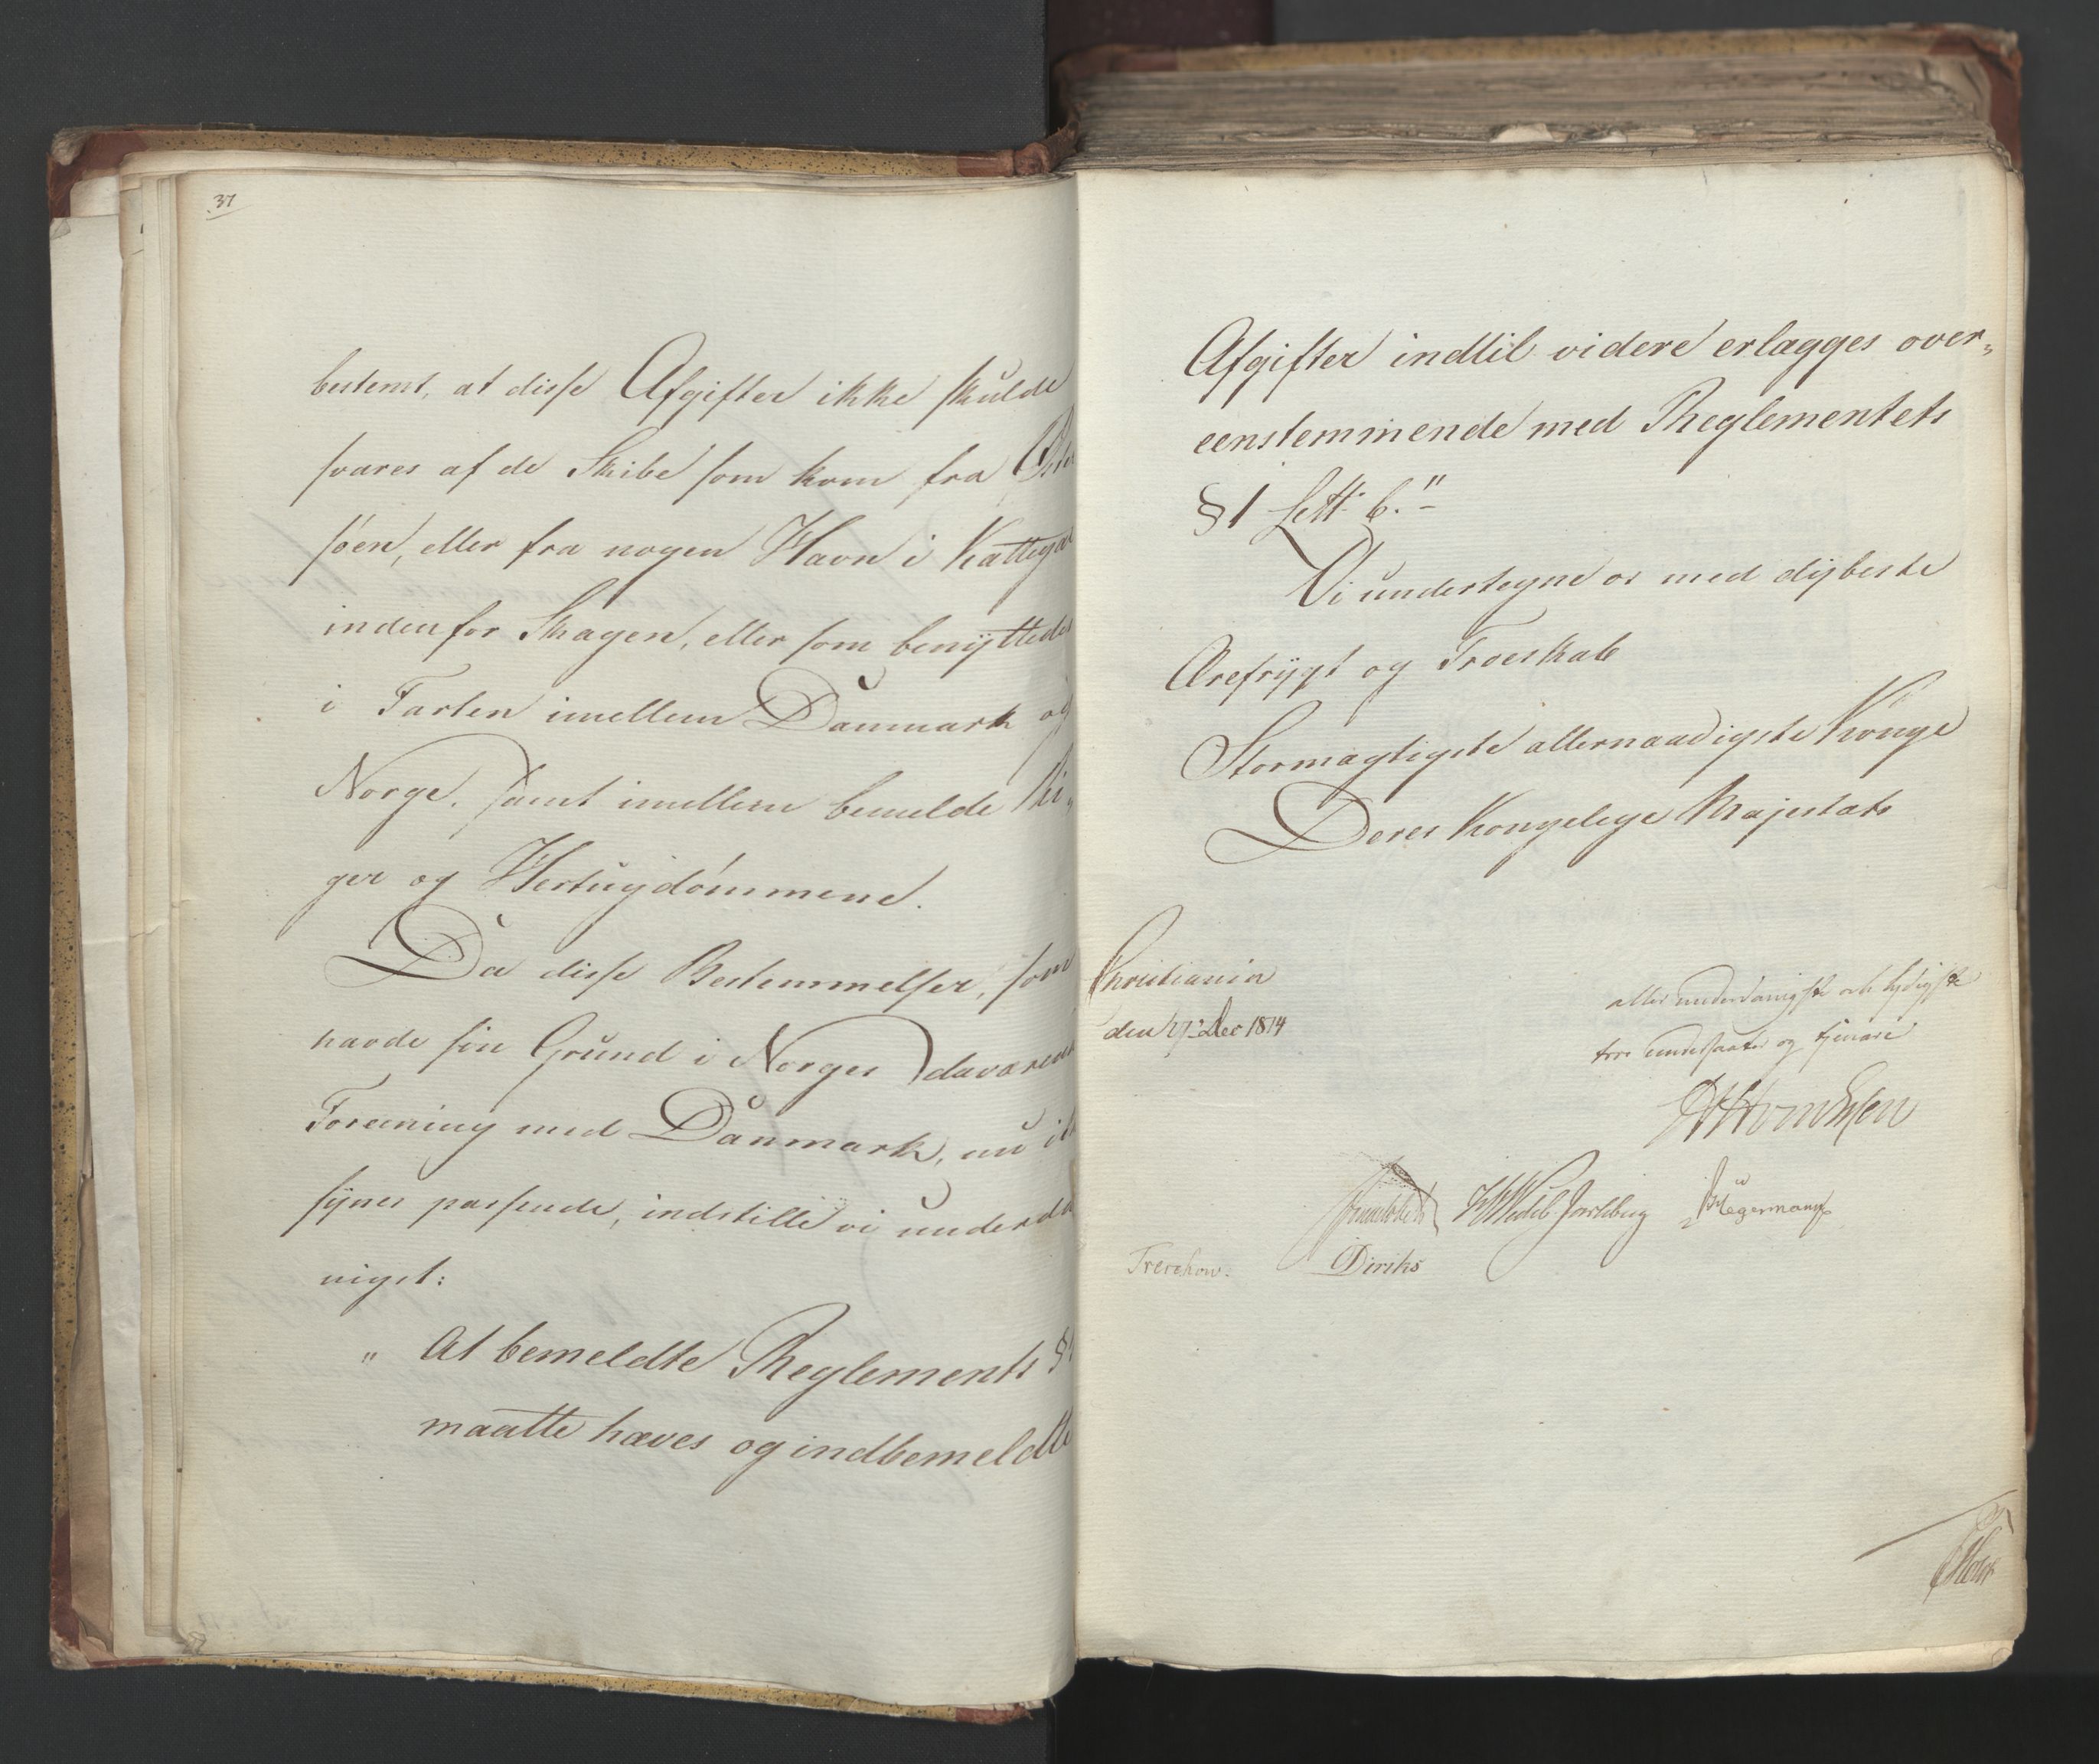 37
bestemt, at disse Afgifter ikke skulde
svares af de Skibe som kom fra
søen, eller fra nogen Havn i Kattegat
indenfor Skagen, eller som benyttedes
i Farten imellem Danmark og
Norge, samt imellem bemeldte Ri„
ger og Hertugdømmene.
Da disse Bestemmelser, som
havde sin Grund i Norges daværende
Foreening med Danmark, nu
synes passende, indstille vi underda
nigst:
" At bemeldte Reglements §
maatte hæves og indbemeldte
Afgifter indtil videre erlægges over„
eenstemmende med Reglementets
§ 1 Litt. b."
Vi undertegne os med dybeste
Ærefrygt og Troeskab
Stormægtigste allernaadigste Konge
Deres Kongelige Majestæts
Christiania
den 27 Dec 1814
aller underdanigste och lydigste
troe undersaatter og tjenare
Wedel Jarlsberg Hegermann
Treschow. Diriks